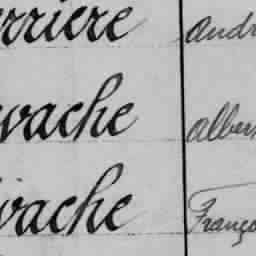 rriere Andr
vache alber
vache Franço